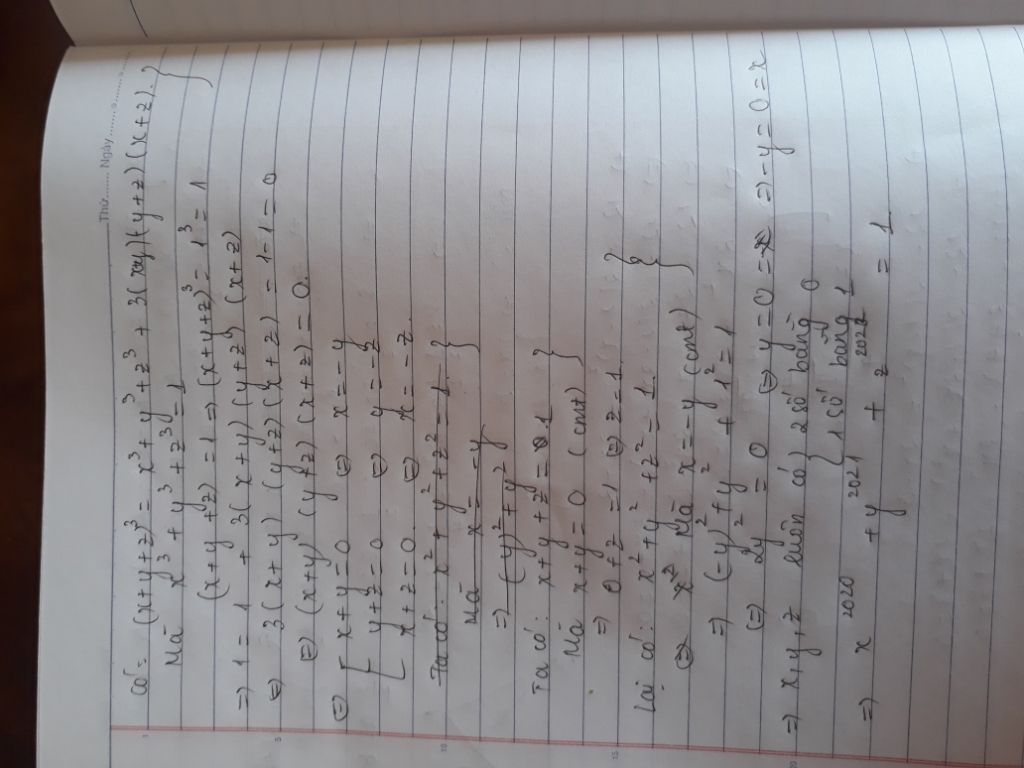 Thứ......... Ngày..................
Có: (x+y+z)³ = x³ + y³ + z³ + 3(xy)(y+z)(x+z). }
Mà x³ + y³ + z³y = 1
(x+y+z) = 1 => (x+y+z)³ = 1³ = 1
=> 1 = 1 + 3(x+y)(y+z)(x+z)
⇔ 3(x+y)(y+z)(x+z) = 1-1 = 0
⇔ (x+y)(y+z)(x+z) = 0.
⇔ [ x+y = 0 ⇔ x = -y
y+z = 0 ⇔ y = -z
x+z = 0. ⇔ x = -z.
Ta có: x² + y² + z² = 1 }
Mà x = -y
=> (-y)² + y²
Ta có: x+y+z = 1 }
Mà x+y = 0 (cmt)
=> 0 + z = 1 ⇔ z = 1. }
Lại có: x² + y² + z² = 1. }
⇔ x² Mà x = -y (cmt)
=> (-y)² + y² + 1² = 1
⇔ 2y² = 0 ⇔ y = 0 = x => -y = 0 = x
=> x, y, z luôn có { 2 số bằng 0
1 số bằng 1
=> x²⁰²⁰ + y²⁰²¹ + z²⁰²² = 1
1
5
10
15
20